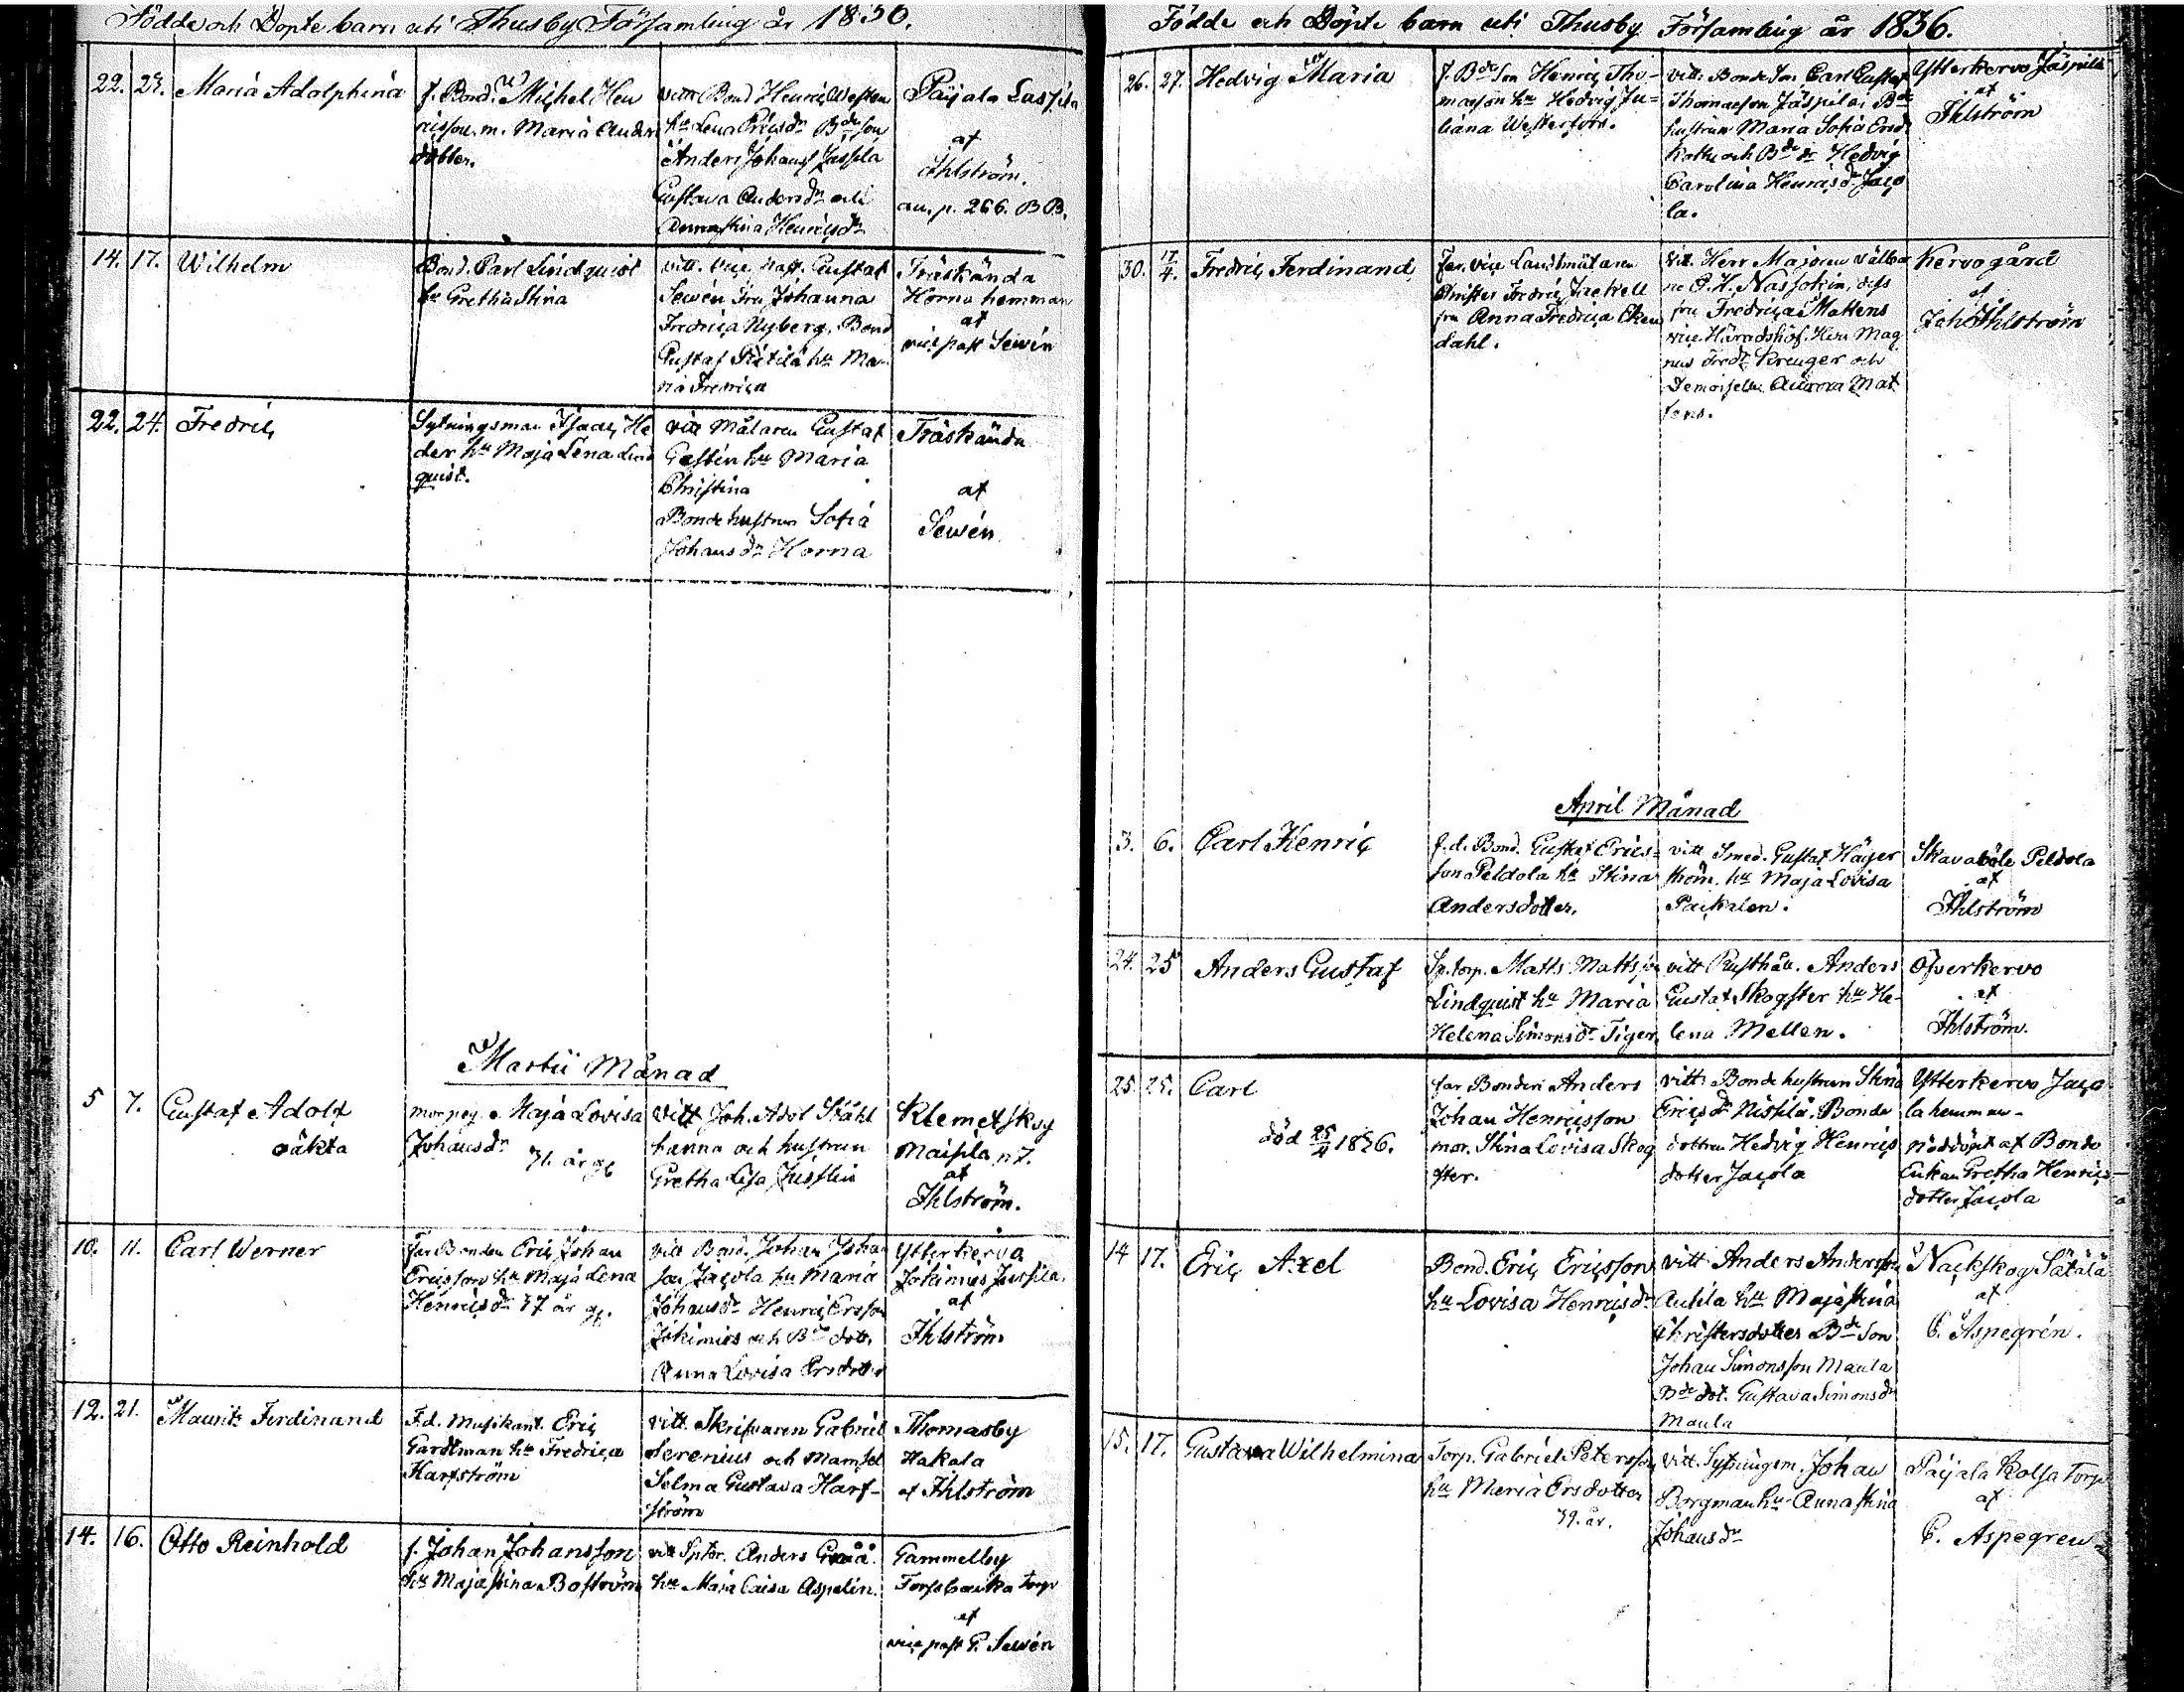 Födde och Döpte barn uti Thusby Församling år 1836.
22. 23. Maria Adolphina
f. Bond. Michel Hen
ricsson m. Maria Anders
dotter.
vittn Bond Henric Weston
hu Lena Ericsdr Bdeson
Anders Johansf Jussila
Gustava Andersdr och
Annastina Henricsdr
Paijala Lassila
af
Ihlström.
an. p. 266. BB.
14. 17. Wilhelm
Bond. Carl Lindquist
hu Gretha Stina
vitt. vice Past. Gustaf
Sewén fru Johanna
Fredrica Nyberg, Bond
Gustaf Pietilä hu Ma
ria Fredrica
Träskända
Horna hemman
af
vice past Sewén
22. 24. Fredric
Sytningsman Isaac He
der hu Maja Lena Lind
quist.
vitt Målaren Gustaf
Gestin hu Maria
Christina
Bondehustrun Sofia
Johansdr Horna
Träskända
af
Sewén
Martii Månad
5 7. Gustaf Adolf
oäkta
mor pig. Maja Lovisa
Johansdr
31. år gl
vitt Joh. Adol Ståhl
hanna och hustrun
Gretha Lisa Jusslin
Klemetskog
Maisila n 7.
af
Ihlström.
10. 11. Carl Werner
far Bonden Eric Johan
Ericsson hu Maja Lena
Henricsdr 37 år gl.
vitt Bond. Johan Johan
son Jacola hu Maria
Johansdr Henric Ersson
Jokimies och Bde dott.
Anna Lovisa Ersdotter
Ytterkerva
Jokimies Jussila.
af
Ihlström
12. 21. Mauritz Ferdinand
F.d. Musikant. Eric
Gardtman hu Fredrica
Harfström
vitt. Skrifvaren Gabriel
Serenius och Mamsel
Selma Gustava Harf-
ström
Thomasby
Hakala
af Ihlström
14. 16. Otto Reinhold
f. Johan Johansson
hu Majastina Boström
vitt Sptor. Anders Grää
hu Maja Caisa Aspelin.
Gammelby
Forsbacka torp
af
vice past G. Sewén
Födde och Döpte barn uti Thusby Församling år 1836.
26. 27. Hedvig Maria
f. Bdeson Henric Tho-
masson hu Hedvig Ju-
liana Westerfors.
vitt: Bondeson Carl Gustaf
Thomasson Jäspilä, Bde
hustrun Maria Sofia Ersdr
Kotku och Bde dr Hedvig
Carolina Henricsdr Jaco
la.
Ytterkervo Jäspilä
af
Ihlström
30. 17/4. Fredric Ferdinand
Far. vice Landtmätaren
Christer Fredric Jaekell
fru Anna Fredrica Eken
dahl.
vitt. Herr Majoren välbor
ne P. H. Nassokin, dess
fru Fredrica Mattens
vice Häradshöf. Herr Mag
nus Fredr. Kreuger och
Demoiselle Aurora Mat
tens.
Kervo gård
af
Joh Ihlström
April Månad
3. 6. Carl Henric
f. d. Bond. Gustaf Erics-
son Peldola hu Stina
Andersdotter.
vitt Smed. Gustaf Häger
ström. hu Maja Lovisa
Paikalen.
Skavaböle Peldola
af
Ihlström
24. 25 Anders Gustaf
Sp.torp. Matts Mattsson
Lindquist hu Maria
Helena Simonsdr Tiger
vitt Rusthåll. Anders
Gustaf Skogster hu He-
lena Mellen.
Ofverkervo
af
Ihlström.
25. 25. Carl
död 25/4 1836.
far Bonden Anders
Johan Henricsson
mor. Stina Lovisa Skog
ster.
vitt: Bondehustrun Stina
Ericsdr Nissilä. Bonde
dottren Hedvig Henrics
dotter Jacola
Ytterkervo Jaco
la hemman-
nöddöpt af Bonde
Enkan Gretha Henrics
dotter Jacola
14 17. Eric Axel
Bond. Eric Ericsson
hu Lovisa Henricsdr
vitt. Anders Andersson
Anttila hu Majastina
Christersdotter Bde son
Johan Simonsson Maula
Bde dot. Gustava Simonsdr
Maula
Nackskog Sätälä
af
C. Aspegrén.
15. 17. Gustava Wilhelmina
Torp. Gabriel Petersson
hu Maria Ersdotter
39. år.
vitt. Sytningsm. Johan
Borgman hu Annastina
Johansdr
Paijala Kolsa torp
af
C. Aspegren